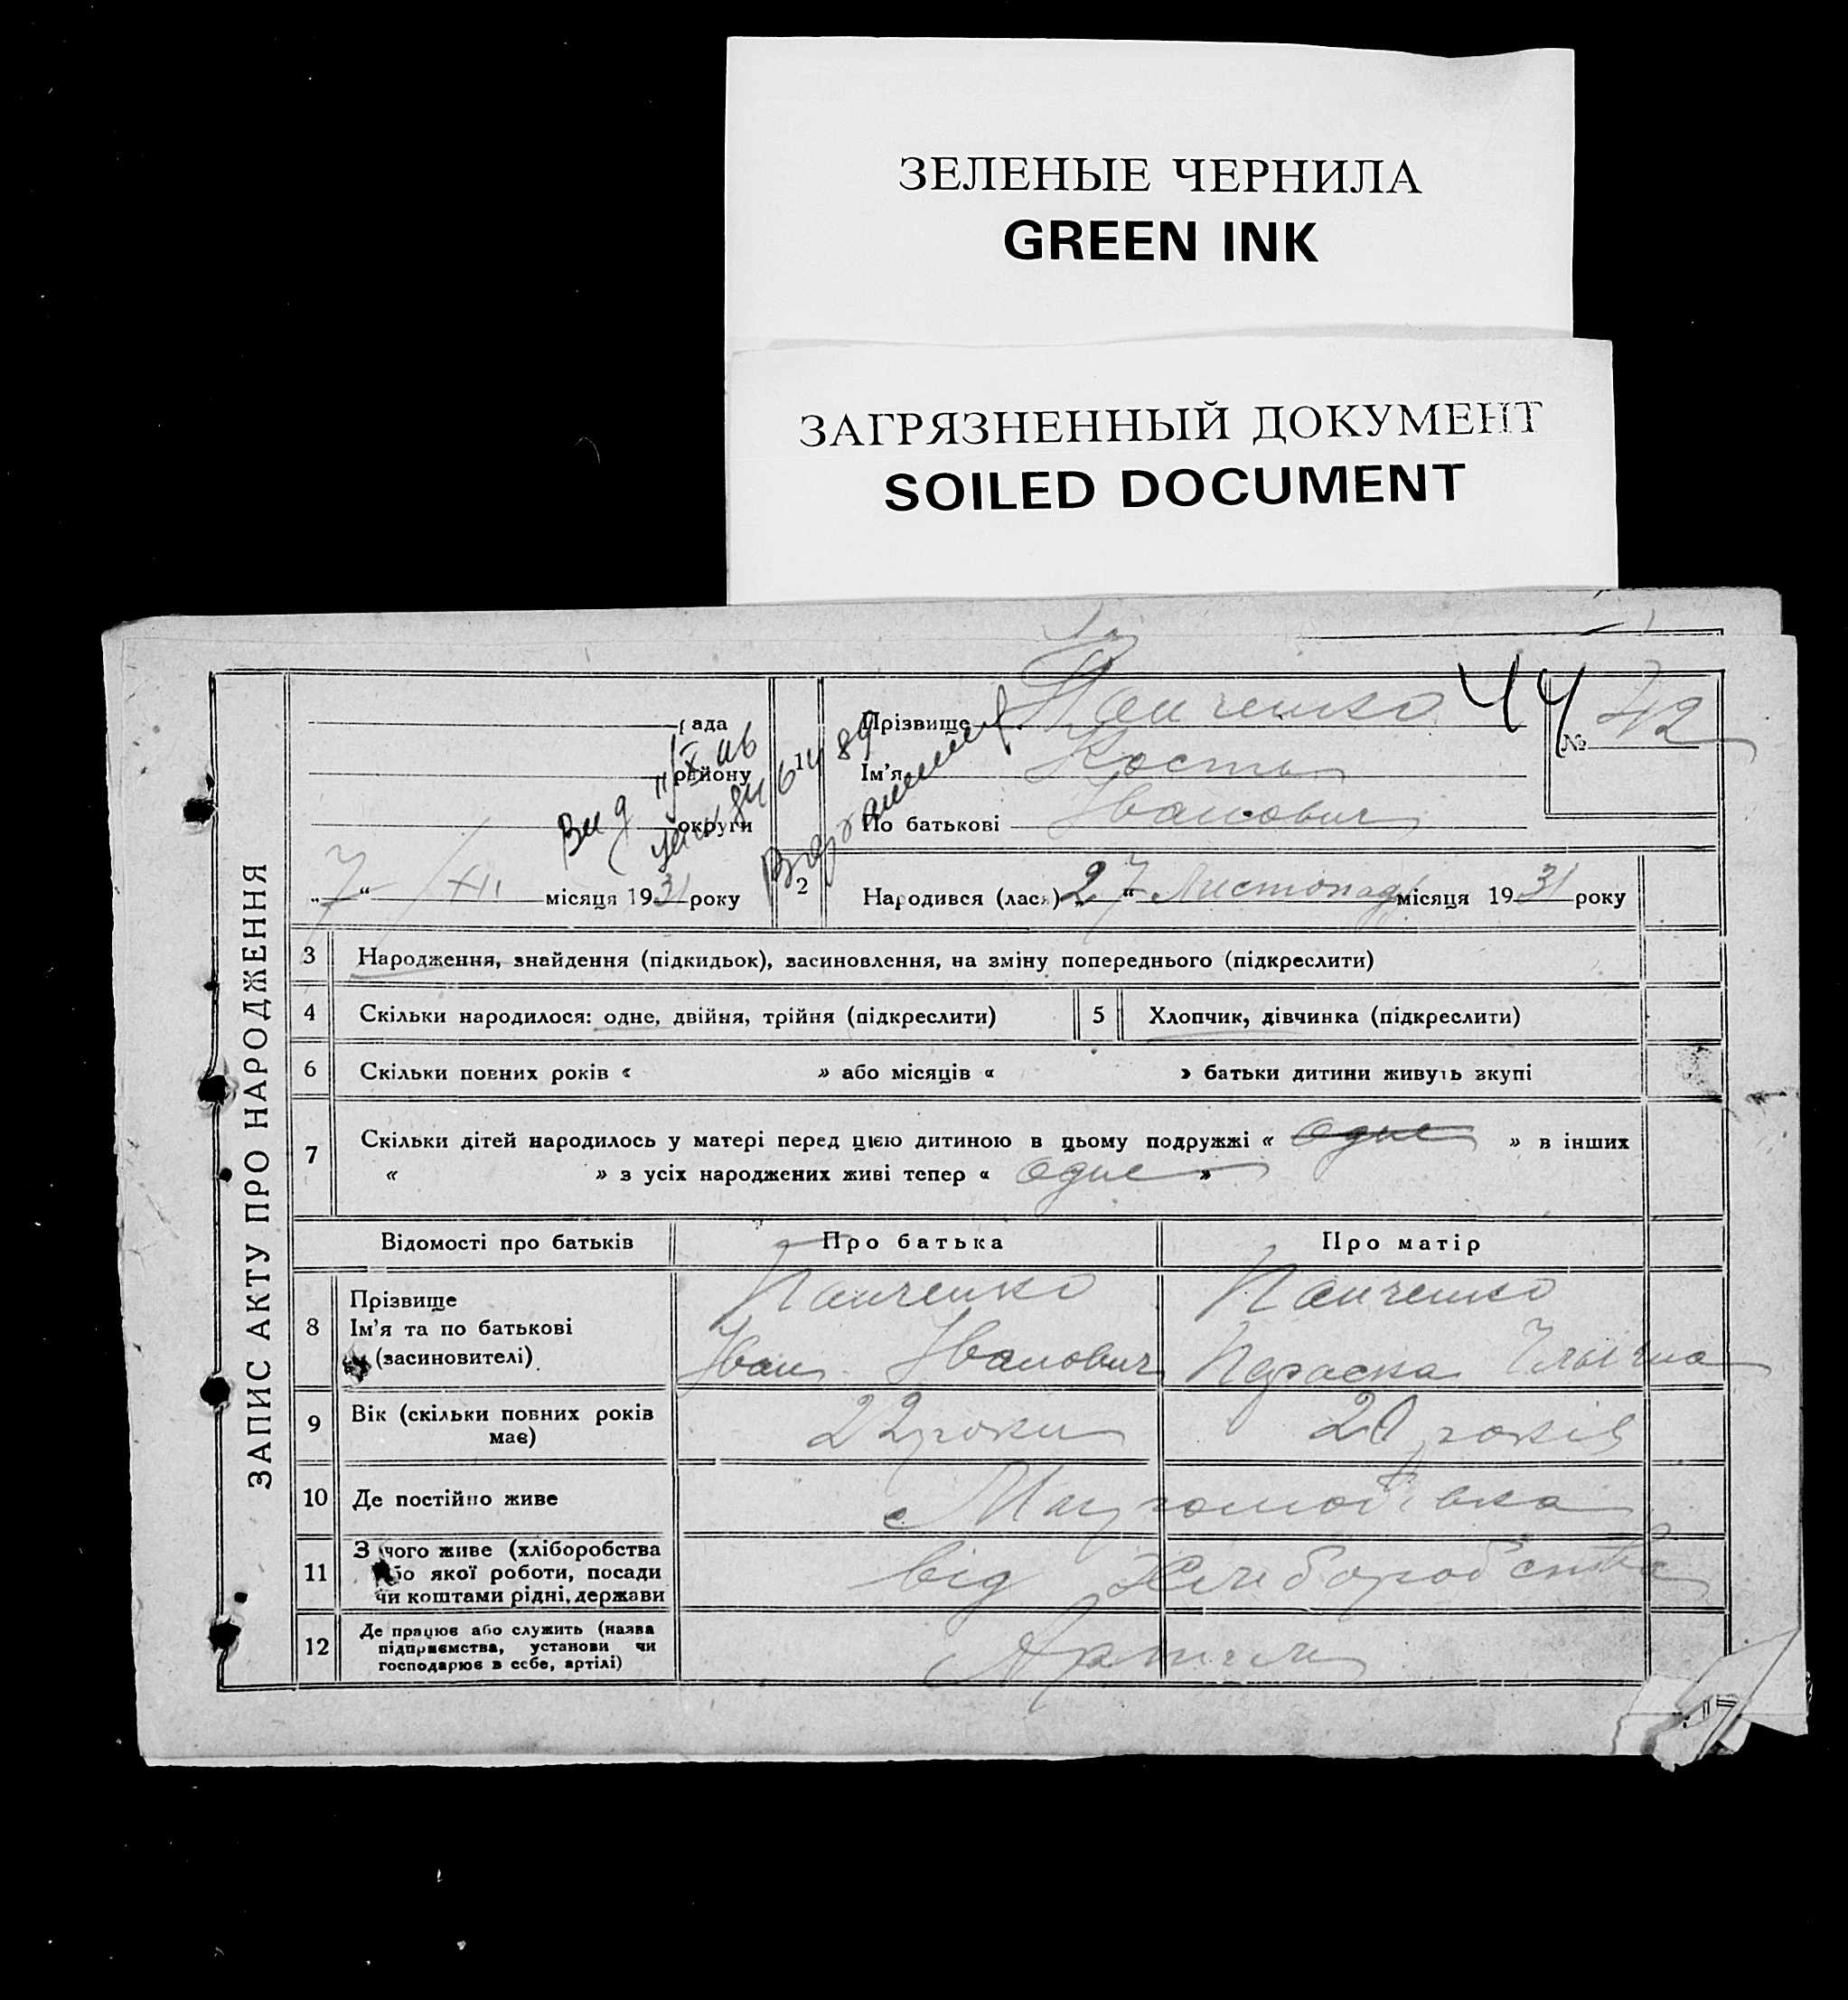 ЗЕЛЕНЫЕ ЧЕРНИЛА
GREEN INK
ЗАГРЯЗНЕННЫЙ ДОКУМЕНТ
SOILED DOCUMENT
ЗАПИС АКТУ ПРО НАРОДЖЕННЯ
рада
району
округи
„7“ XII місяця 1931 року
44
№ 42
1
Прізвище Панченко
Ім'я Кость
По батькові Іванович
2 Народився (лася) „27“ Листопада місяця 1931 року
3 Народження, знайдення (підкидьок), засиновлення, на зміну попереднього (підкреслити)
4 Скільки народилося: одне, двійня, трійня (підкреслити) 5 Хлопчик, дівчинка (підкреслити)
6 Скільки повних років « » або місяців « » батьки дитини живуть вкупі
7 Скільки дітей народилось у матері перед цією дитиною в цьому подружжі « одне » в інших
« » з усіх народжених живі тепер « одне »
Відомості про батьків Про батька Про матір
8 Прізвище Панченко Панченко
Ім'я та по батькові Іван Іванович Параска
(засиновителі)
9 Вік (скільки повних років має) 22 роки 20 років
10 Де постійно живе с
11 З чого живе (хліборобства
або якої роботи, посади від Хліборобства
чи коштами рідні, держави
12 Де працює або служить (назва
підприємства, установи чи
господарює в себе, артілі)